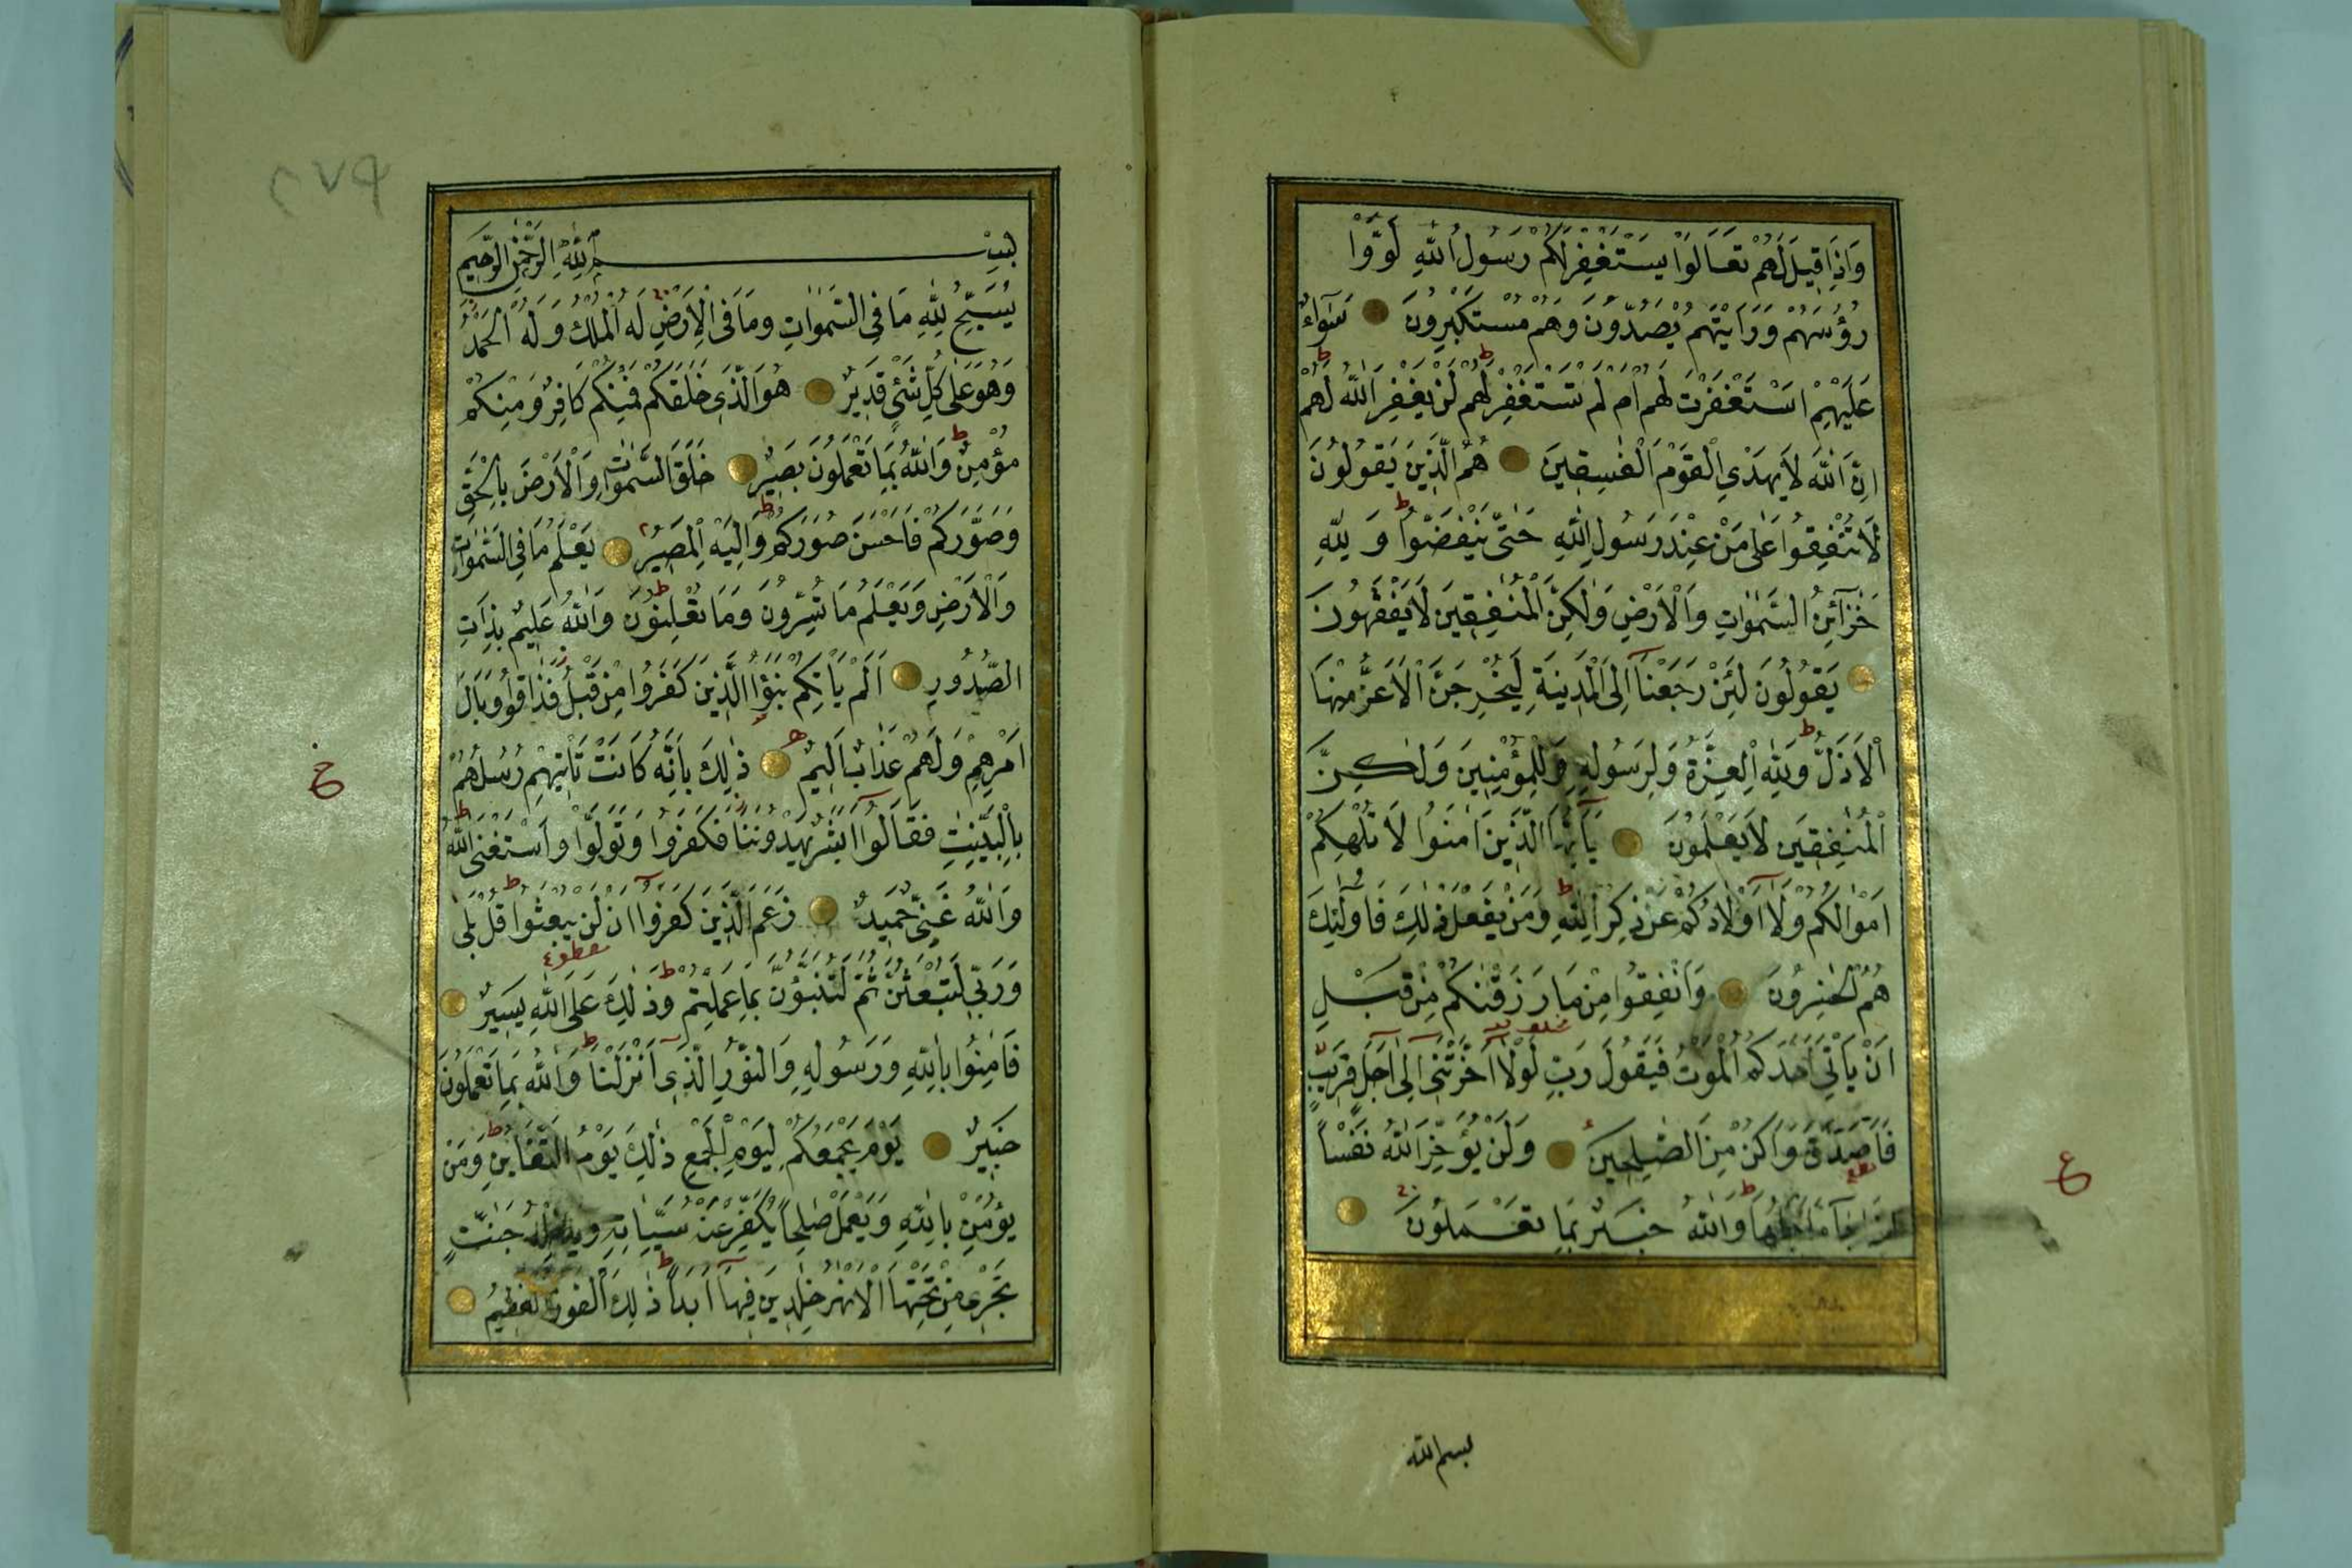 وَاِذَا قِيلَ لَهُمْ تَعَالَوْا يَسْتَغْفِرْ لَكُمْ رَسُولُ اللّٰهِ لَوَّوْا
رُؤُسَهُمْ وَرَاَيْتَهُمْ يَصُدُّونَ وَهُمْ مُسْتَكْبِرُونَ سَوَآءٌ
عَلَيْهِمْ اَسْتَغْفَرْتَ لَهُمْ اَمْ لَمْ تَسْتَغْفِرْ لَهُمْ لَنْ يَغْفِرَ اللّٰهُ لَهُمْ
اِنَّ اللّٰهَ لَا يَهْدِي الْقَوْمَ الْفٰسِقِينَ هُمُ الَّذِينَ يَقُولُونَ
لَا تُنْفِقُوا عَلٰى مَنْ عِنْدَ رَسُولِ اللّٰهِ حَتّٰى يَنْفَضُّوا وَلِلّٰهِ
خَزَآئِنُ السَّمٰوَاتِ وَالْاَرْضِ وَلٰكِنَّ الْمُنٰفِقِينَ لَا يَفْقَهُونَ
يَقُولُونَ لَئِنْ رَجَعْنَآ اِلَى الْمَدِينَةِ لَيُخْرِجَنَّ الْاَعَزُّ مِنْهَا
الْاَذَلَّ وَلِلّٰهِ الْعِزَّةُ وَلِرَسُولِهِ وَلِلْمُؤْمِنِينَ وَلٰكِنَّ
الْمُنٰفِقِينَ لَا يَعْلَمُونَ يَآ اَيُّهَا الَّذِينَ اٰمَنُوا لَا تُلْهِكُمْ
اَمْوَالُكُمْ وَلَآ اَوْلَادُكُمْ عَنْ ذِكْرِ اللّٰهِ وَمَنْ يَفْعَلْ ذٰلِكَ فَاُولٰئِكَ
هُمُ الْخٰسِرُونَ وَاَنْفِقُوا مِنْ مَا رَزَقْنٰكُمْ مِنْ قَبْلِ
اَنْ يَاْتِيَ اَحَدَكُمُ الْمَوْتُ فَيَقُولَ رَبِّ لَوْلَآ اَخَّرْتَنِي اِلٰٓى اَجَلٍ قَرِيبٍ
فَاَصَّدَّقَ وَاَكُنْ مِنَ الصّٰلِحِينَ وَلَنْ يُؤَخِّرَ اللّٰهُ نَفْسًا
اِذَا جَآءَ اَجَلُهَا وَاللّٰهُ خَبِيرٌ بِمَا تَعْمَلُونَ
ع
بسم الله
٢٧٩
بِسْمِ اللّٰهِ الرَّحْمٰنِ الرَّحِيمِ
يُسَبِّحُ لِلّٰهِ مَا فِي السَّمٰوَاتِ وَمَا فِي الْاَرْضِ لَهُ الْمُلْكُ وَلَهُ الْحَمْدُ
وَهُوَ عَلٰى كُلِّ شَيْءٍ قَدِيرٌ هُوَ الَّذِي خَلَقَكُمْ فَمِنْكُمْ كَافِرٌ وَمِنْكُمْ
مُؤْمِنٌ وَاللّٰهُ بِمَا تَعْمَلُونَ بَصِيرٌ خَلَقَ السَّمٰوَاتِ وَالْاَرْضَ بِالْحَقِّ
وَصَوَّرَكُمْ فَاَحْسَنَ صُوَرَكُمْ وَاِلَيْهِ الْمَصِيرُ يَعْلَمُ مَا فِي السَّمٰوَاتِ
وَالْاَرْضِ وَيَعْلَمُ مَا تُسِرُّونَ وَمَا تُعْلِنُونَ وَاللّٰهُ عَلِيمٌ بِذَاتِ
الصُّدُورِ اَلَمْ يَاْتِكُمْ نَبَؤُا الَّذِينَ كَفَرُوا مِنْ قَبْلُ فَذَاقُوا وَبَالَ
اَمْرِهِمْ وَلَهُمْ عَذَابٌ اَلِيمٌ ذٰلِكَ بِاَنَّهُ كَانَتْ تَاْتِيهِمْ رُسُلُهُمْ
بِالْبَيِّنٰتِ فَقَالُوٓا اَبَشَرٌ يَهْدُونَنَا فَكَفَرُوا وَتَوَلَّوْا وَاسْتَغْنَى اللّٰهُ
وَاللّٰهُ غَنِيٌّ حَمِيدٌ زَعَمَ الَّذِينَ كَفَرُوٓا اَنْ لَنْ يُبْعَثُوا قُلْ بَلٰى
وَرَبِّي لَتُبْعَثُنَّ ثُمَّ لَتُنَبَّؤُنَّ بِمَا عَمِلْتُمْ وَذٰلِكَ عَلَى اللّٰهِ يَسِيرٌ
فَاٰمِنُوا بِاللّٰهِ وَرَسُولِهِ وَالنُّورِ الَّذِيٓ اَنْزَلْنَا وَاللّٰهُ بِمَا تَعْمَلُونَ
خَبِيرٌ يَوْمَ يَجْمَعُكُمْ لِيَوْمِ الْجَمْعِ ذٰلِكَ يَوْمُ التَّغَابُنِ وَمَنْ
يُؤْمِنْ بِاللّٰهِ وَيَعْمَلْ صٰلِحًا يُكَفِّرْ عَنْهُ سَيِّاٰتِهِ وَيُدْخِلْهُ جَنّٰتٍ
تَجْرِي مِنْ تَحْتِهَا الْاَنْهٰرُ خٰلِدِينَ فِيهَآ اَبَدًا ذٰلِكَ الْفَوْزُ الْعَظِيمُ